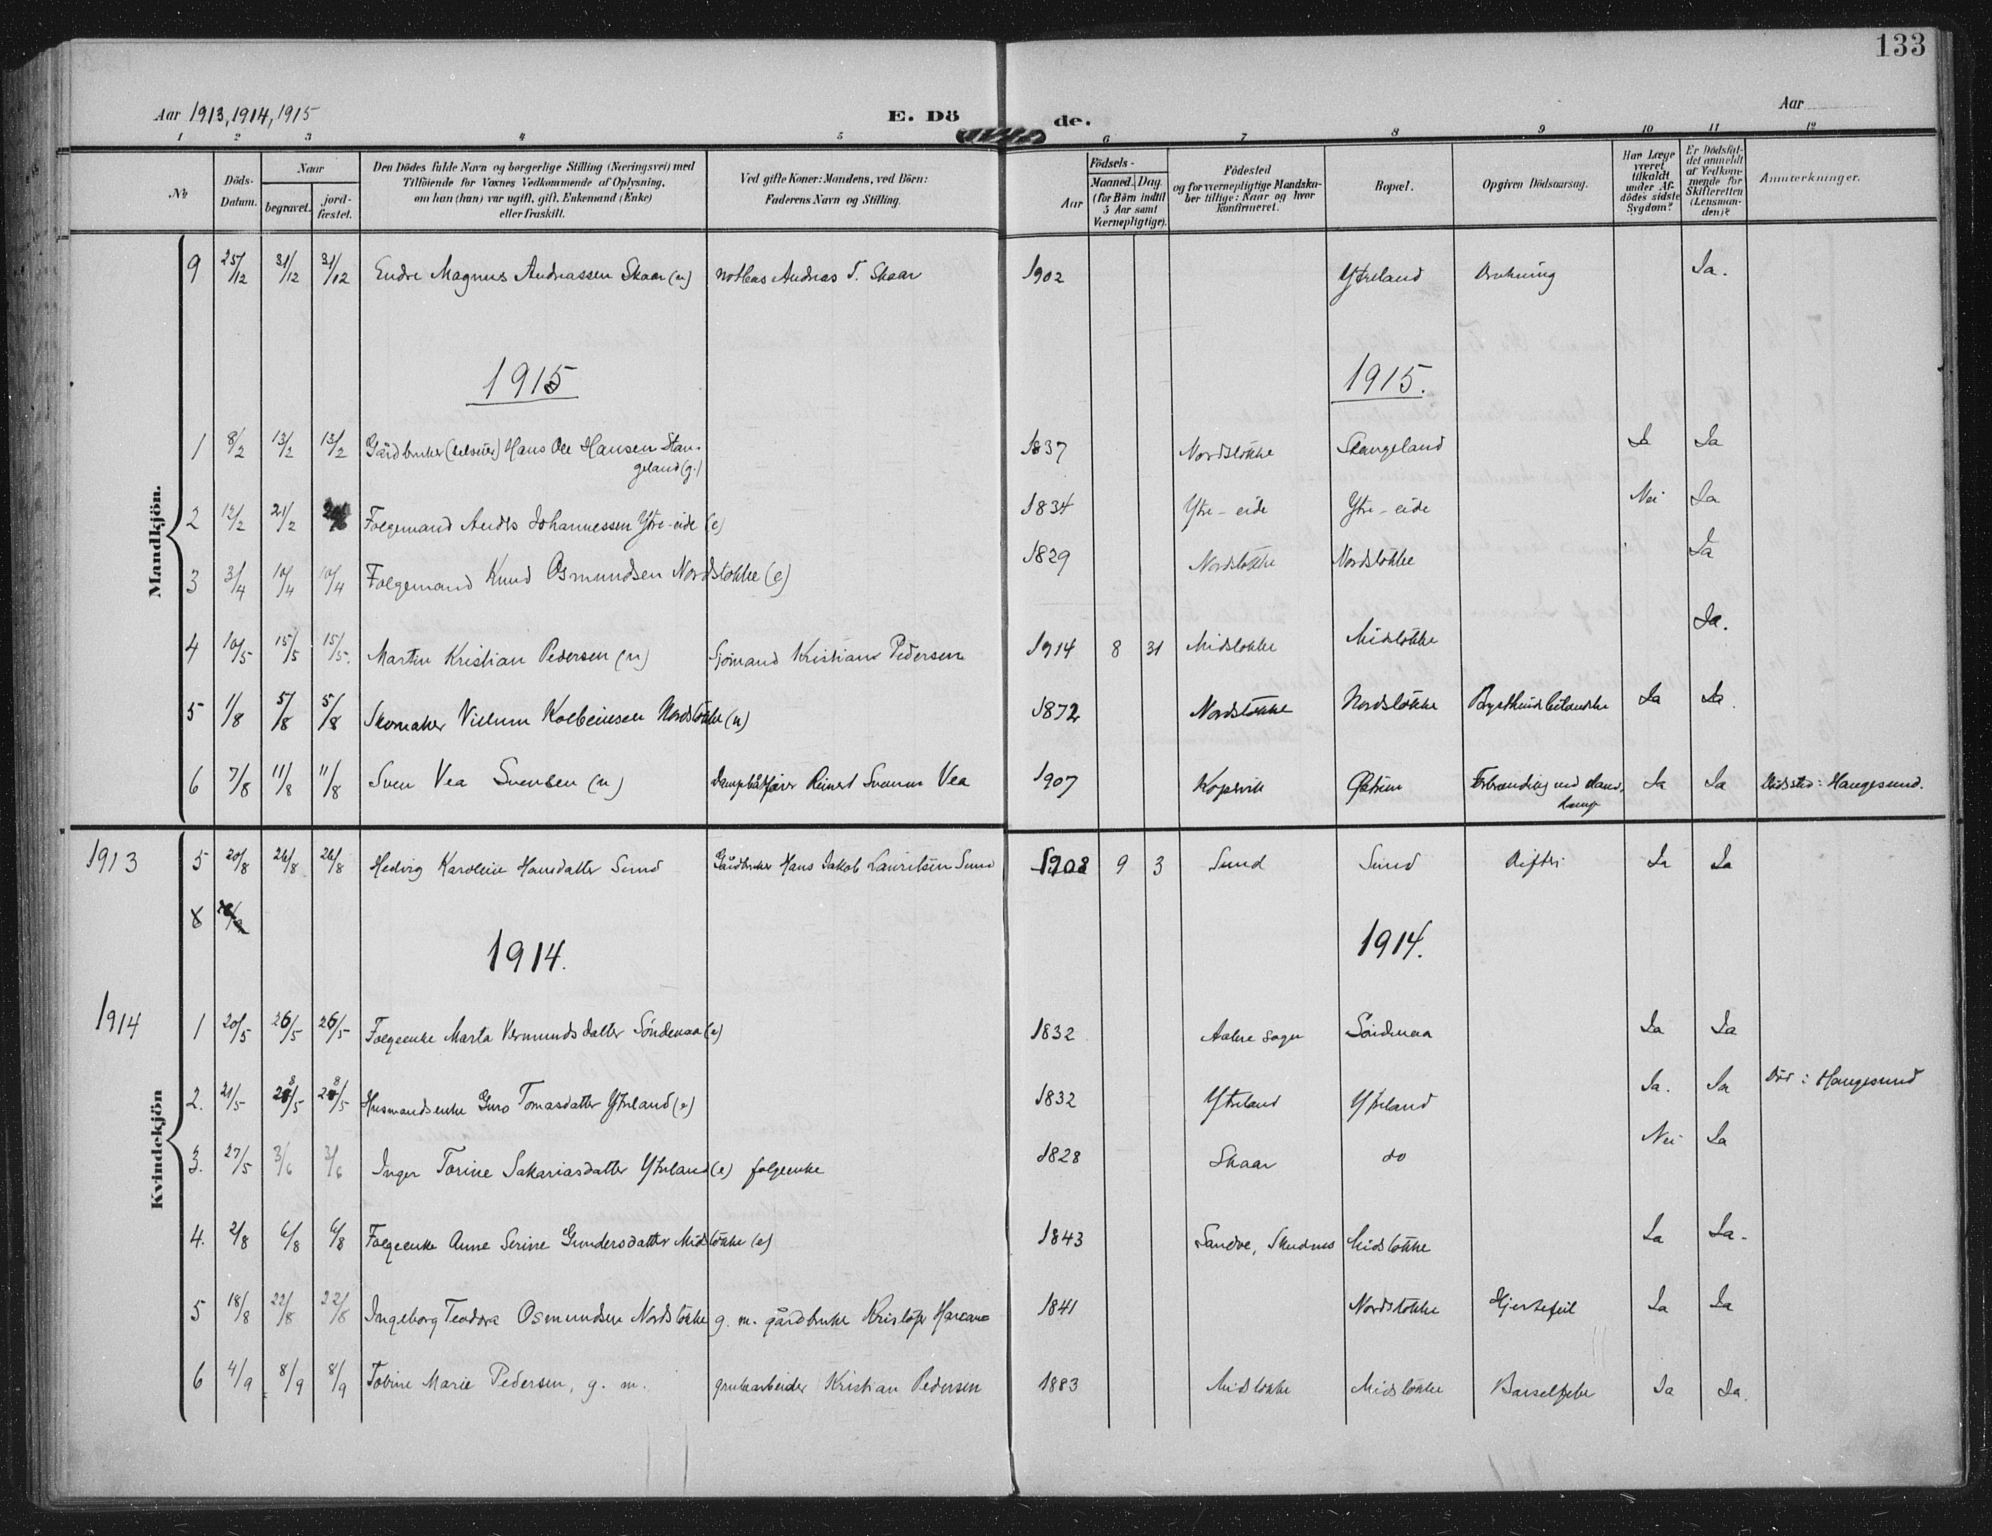 133
Aar 1913, 1914, 1915
E. Dö de.
Aar
1 2 3 4 5 6 7 8 9 10 11 12
No
Döds-Datum.
Naar
begravet.
jord-fæstet.
Den Dödes fulde Navn og borgerlige Stilling (Næringsvei) med
Tilföiende for Voxnes Vedkommende af Oplysning,
om han (hun) var ugift, gift, Enkemand (Enke)
eller fraskilt.
Ved gifte Koner: Mandens, ved Börn:
Faderens Navn og Stilling.
Födsels-
Aar
Maaned. Dag
(for Börn indtil
5 Aar samt
Værnepligtige).
Födested
og for værnepligtige Mandska-
ber tillige: Naar og hvor
konfirmeret.
Bopæl.
Opgiven Dödsaarsag.
Har Læge
været
tilkaldt
under Af-
dödes sidste
Sygdom?
Er Dödsfal-
det anmeldt
af Vedkom-
mende for
Skifteretten
(Lensman-
den)?
Anmerkninger.
Mandkjön.
9 25/12 31/12 31/12 Endre Magnus Andreassen Skaar (u) Andreas T. Skaar 1902 Ytreland Drukning Ja.
1915 1915.
1 8/2 13/2 13/2 Gårdbruker Hans Ole Hansen Stan-
geland (g.) 1837 Nordstokke Stangeland Ja Ja
2 12/2 21/2 Folgemand Anders Johannessen Ytre-eide (e) 1834 Ytre-eide Ytre-eide Nei Ja
3 3/4 10/4 10/4 Folgemand Knud Osmundsen Nordstokke (e) 1829 Nordstokke Nordstokke Ja
4 10/5 15/5 15/5. Martin Kristian Pedersen (u) Sjömand Kristian Pedersen 1914 8 31 Midstokke Midstokke Ja.
5 1/8 5/8 5/8 Skomaker Villum Kolbeinsen Nordstokke (u) 1872 Nordstokke Nordstokke Brysthindebetændelse Ja Ja
6 7/8 11/8 11/8 Sven Vea Svensen (u) Reinert Svensen Vea 1907 Kopervik Forbrænding ved
damp Ja Ja Dödssted: Haugesund.
1913 5 20/8 26/8 26/8 Hedvig Karoline Hansdatter Sund Gårdbruker Hans Jakob Lauritsen Sund 1908 9 3 Sund Sund Difteri Ja Ja
8
1914. 1914.
Kvindekjön
1914 1 20/5 26/5 26/5 Folgeenke Marta Vermundsdatter Söndenaa (e) 1832 Söndenaa Ja Ja
2. 21/5 28/5 28/5 Husmandsenke Guro Tomasdatter Ytreland (e) 1832 Ytreland Ytreland Ja. Ja Död: Haugesund
3. 27/5 3/6 3/6 Inger Torine Sakariasdatter Ytreland (e) folgeenke 1828 Skaar do Nei Ja
4. 2/8 6/8 6/8 Folgeenke Anne Serine Gundersdatter Midstokke (e) 1843 Sandve, Skudnes Midstokke Ja Ja.
5 18/8 22/8 22/8 Ingeborg Teodora Osmundsen Nordstokke g. m. gårdbruker 1841 Nordstokke Hjertefeil Ja Ja
6 4/9 8/9 8/9 Tobine Marie Pedersen, g. m. grubearbeider Kristian Pedersen 1883 Midstokke Midstokke Barselfeber Ja Ja.